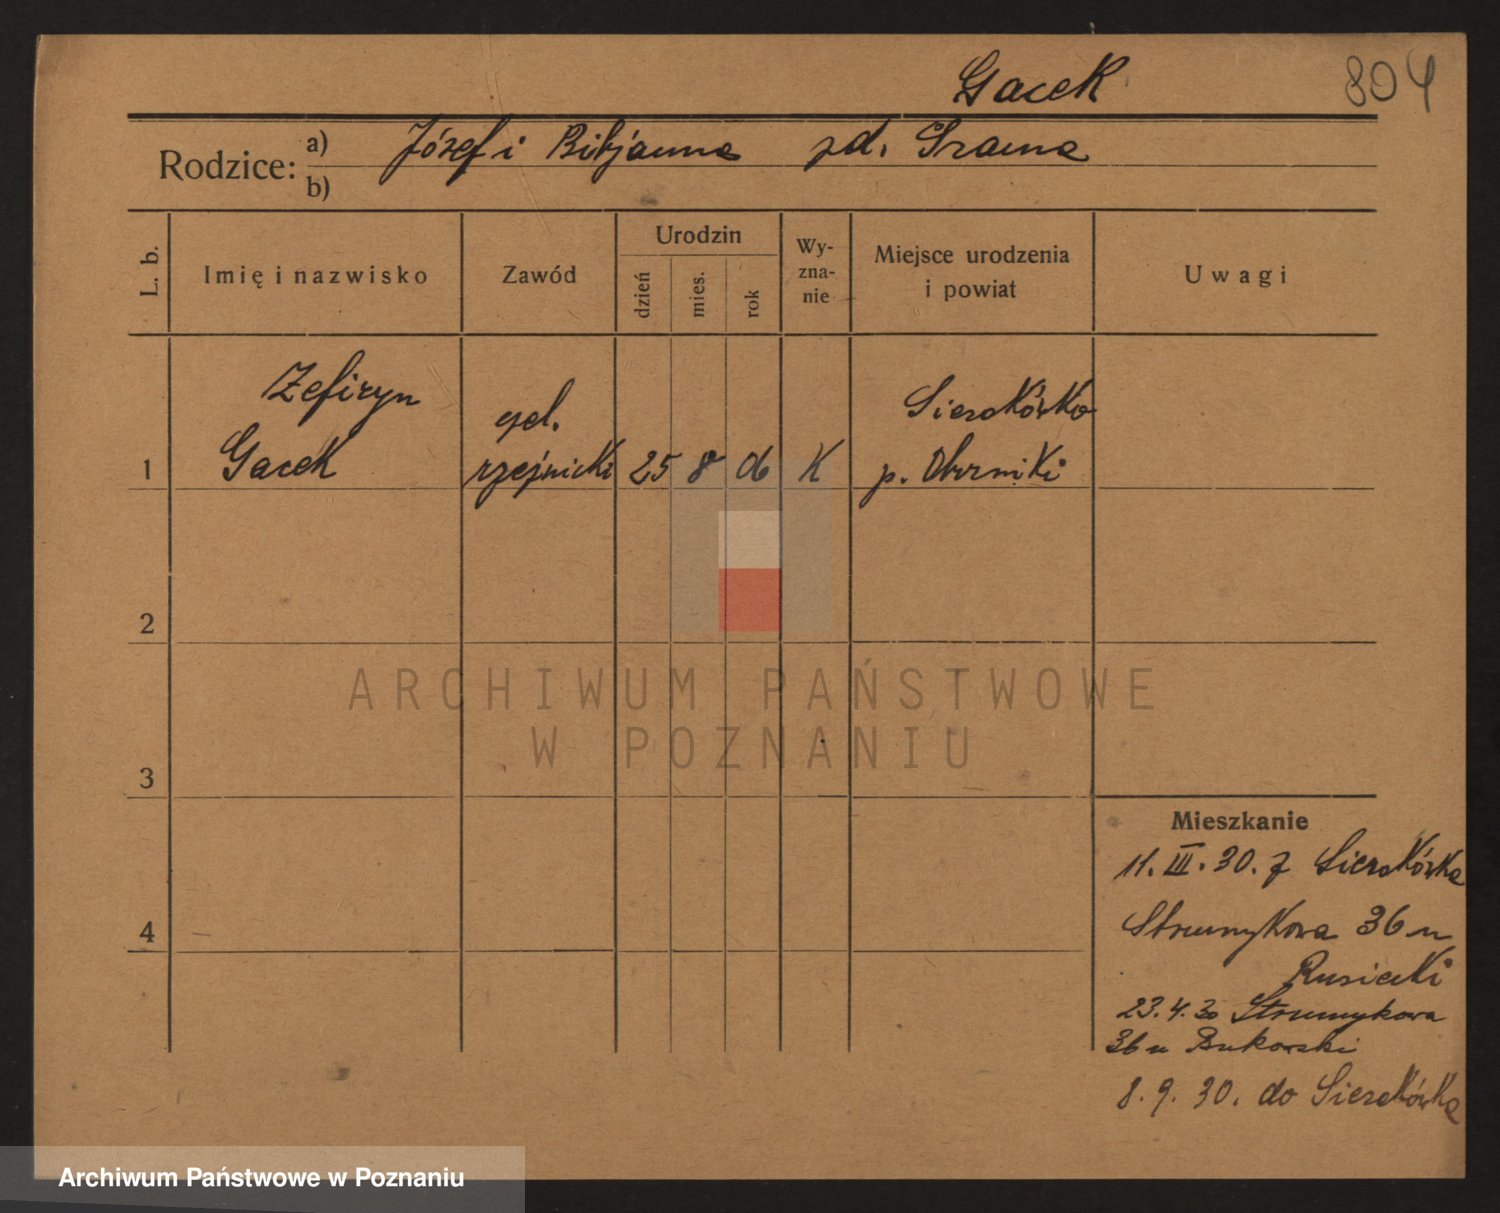 Gacek 804
Rodzice: a) Józef i Bibjanna zd. Srama
b)
L. b.
Imię i nazwisko
Zawód
Urodzin
dzień
mies.
rok
Wy-
zna-
nie
Miejsce urodzenia
i powiat
Uwagi
Zefiryn
Gacek
czel.
rzeźnicki
1
25 8 06 K
Sierakówko
p. Oborniki
2
3
4
ARCHIWUM PAŃSTWOWE
W POZNANIU
Mieszkanie
11. III. 30. z Sierakówka
Strumykowa 36 u
Rusiecki
23.4.30 Strumykowa
36 u Bukowski
8. 9. 30. do Sierakówka
Archiwum Państwowe w Poznaniu